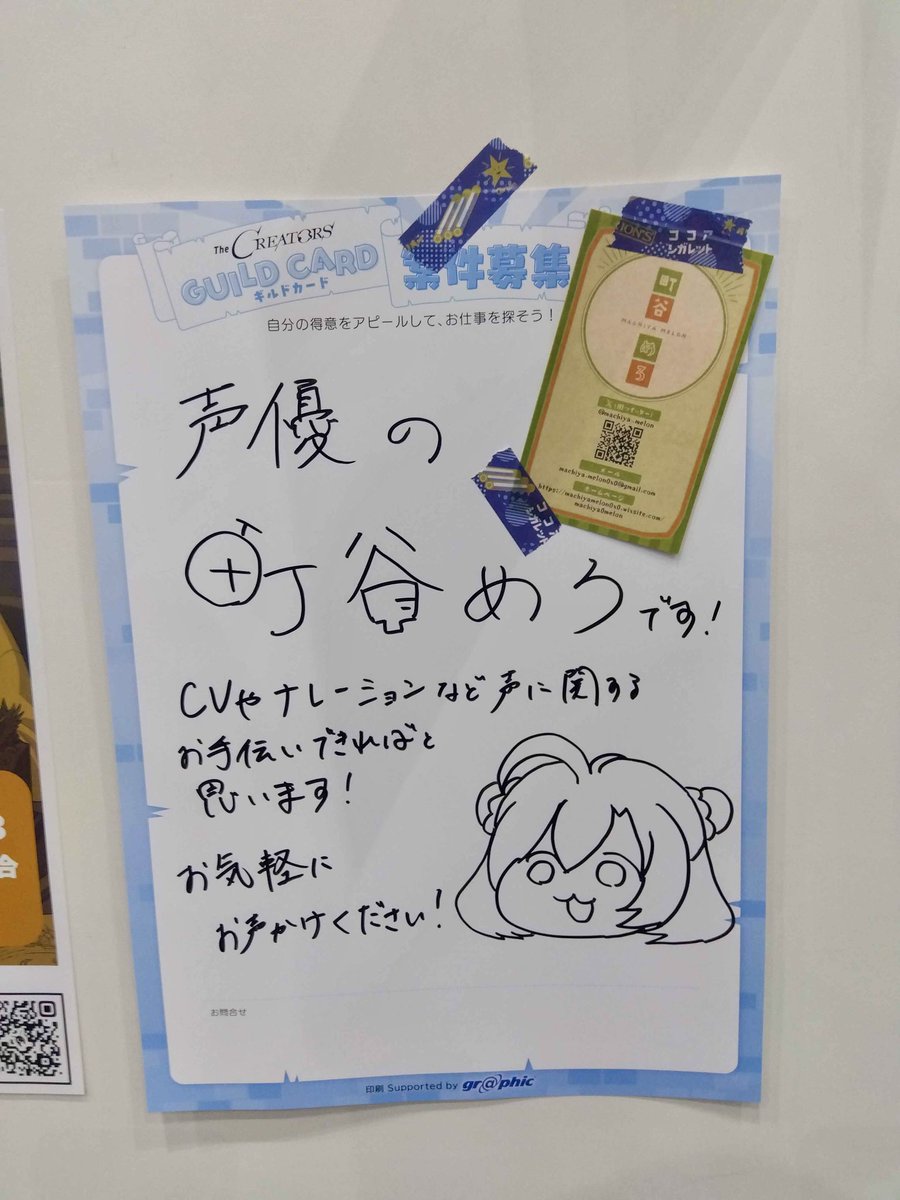 The CREATORS'
GUILD CARD
ギルドカード
案件募集
自分の得意をアピールして、お仕事を探そう!
声優の
町谷めろです!
CVやナレーションなど声に関する
お手伝いできればと
思います!
お気軽に
お声かけください!
お問合せ
印刷 Supported by gr@phic
ココア
シガレット
町
谷
MACHIYA MELON
め
ろ
X(旧ツイッター)
@machiya_melon
メール
machiya.melon0s0@gmail.com
ホームページ
https://machiyamelon0s0.wixsite.com/
machiya0melon
ココア
シガレット